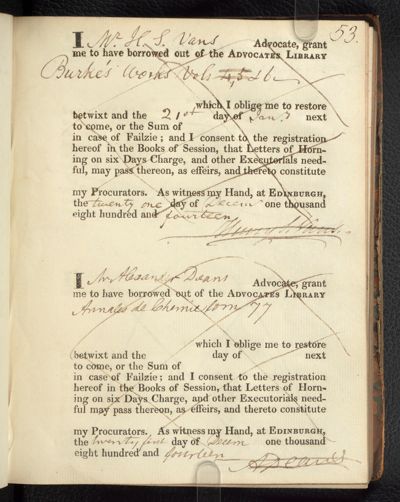 53.
I Mr. H. S. Vans Advocate, grant
me to have borrowed out of the ADVOCATES LIBRARY
Burke's Works Vols 4, 5 & 6
which I oblige me to restore
betwixt and the 21st day of Jany next
to come, or the Sum of
in case of Failzie; and I consent to the registration
hereof in the Books of Session, that Letters of Horn-
ing on six Days Charge, and other Executorials need-
ful, may pass thereon, as effeirs, and thereto constitute
my Procurators. As witness my Hand, at EDINBURGH,
the twenty one day of Decem one thousand
eight hundred and fourteen
I Mr Alexander Deans Advocate, grant
me to have borrowed out of the ADVOCATES LIBRARY
Annales de Chemie tom 77
which I oblige me to restore
betwixt and the day of next
to come, or the Sum of
in case of Failzie; and I consent to the registration
hereof in the Books of Session, that Letters of Horn-
ing on six Days Charge, and other Executorials need-
ful may pass thereon, as effeirs, and thereto constitute
my Procurators. As witness my Hand, at EDINBURGH,
the twenty first day of Decem one thousand
eight hundred and fourteen
A Deans